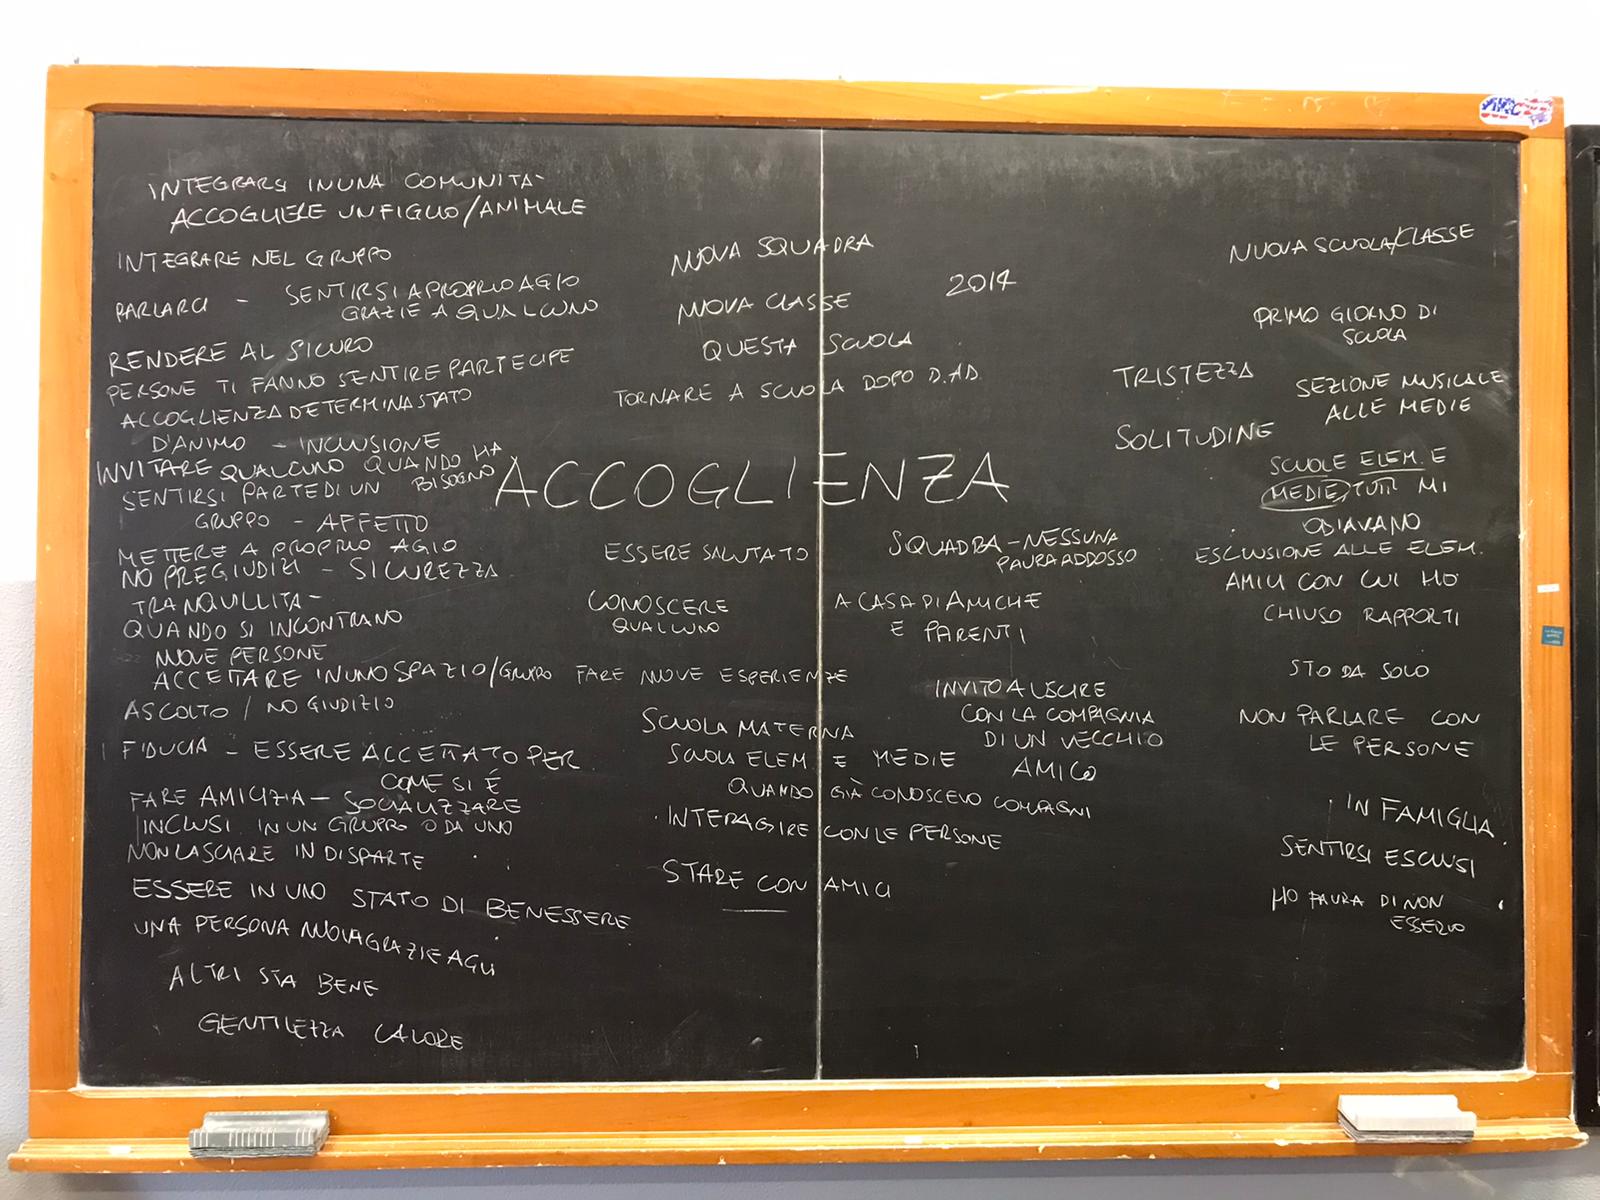 INTEGRARSI IN UNA COMUNITA'
ACCOGLIERE UN FIGLIO/ANIMALE
INTEGRARE NEL GRUPPO
PARLARCI - SENTIRSI A PROPRIO AGIO
GRAZIE A QUALCUNO
RENDERE AL SICURO
PERSONE TI FANNO SENTIRE PARTECIPE
ACCOGLIENZA DETERMINA STATO
D'ANIMO - INCLUSIONE
INVITARE QUALCUNO QUANDO HA
BISOGNO
SENTIRSI PARTE DI UN
GRUPPO - AFFETTO
METTERE A PROPRIO AGIO
NO PREGIUDIZI - SICUREZZA
TRANQUILLITA'
QUANDO SI INCONTRANO
NUOVE PERSONE
ACCETTARE IN UNO SPAZIO/GRUPPO
ASCOLTO / NO GIUDIZIO
FIDUCIA - ESSERE ACCETTATO PER
COME SI É
FARE AMICIZIA - SOCIALIZZARE
INCLUSI IN UN GRUPPO O DA UNO
NON LASCIARE IN DISPARTE
ESSERE IN UNO STATO DI BENESSERE
UNA PERSONA NUOVA GRAZIE AGLI
ALTRI STA BENE
GENTILEZZA CALORE
NUOVA SQUADRA
NUOVA CLASSE
QUESTA SCUOLA
TORNARE A SCUOLA DOPO D.AD.
2014
ACCOGLIENZA
ESSERE SALUTATO
CONOSCERE
QUALCUNO
FARE NUOVE ESPERIENZE
SCUOLA MATERNA
SCUOLA ELEM E MEDIE
QUANDO GIÀ CONOSCEVO COMPAGNI
INTERAGIRE CON LE PERSONE
STARE CON AMICI
SQUADRA - NESSUNA
PAURA ADDOSSO
A CASA DI AMICHE
E PARENTI
INVITO A USCIRE
CON LA COMPAGNIA
DI UN VECCHIO
AMICO
NUOVA SCUOLA/CLASSE
PRIMO GIORNO DI
SCUOLA
TRISTEZZA
SEZIONE MUSICALE
ALLE MEDIE
SOLITUDINE
SCUOLE ELEM. E
MEDIE, TUTTI MI
ODIAVANO
ESCLUSIONE ALLE ELEM.
AMICI CON CUI HO
CHIUSO RAPPORTI
STO DA SOLO
NON PARLARE CON
LE PERSONE
IN FAMIGLIA
SENTIRSI ESCLUSI
HO PAURA DI NON
ESSERLO